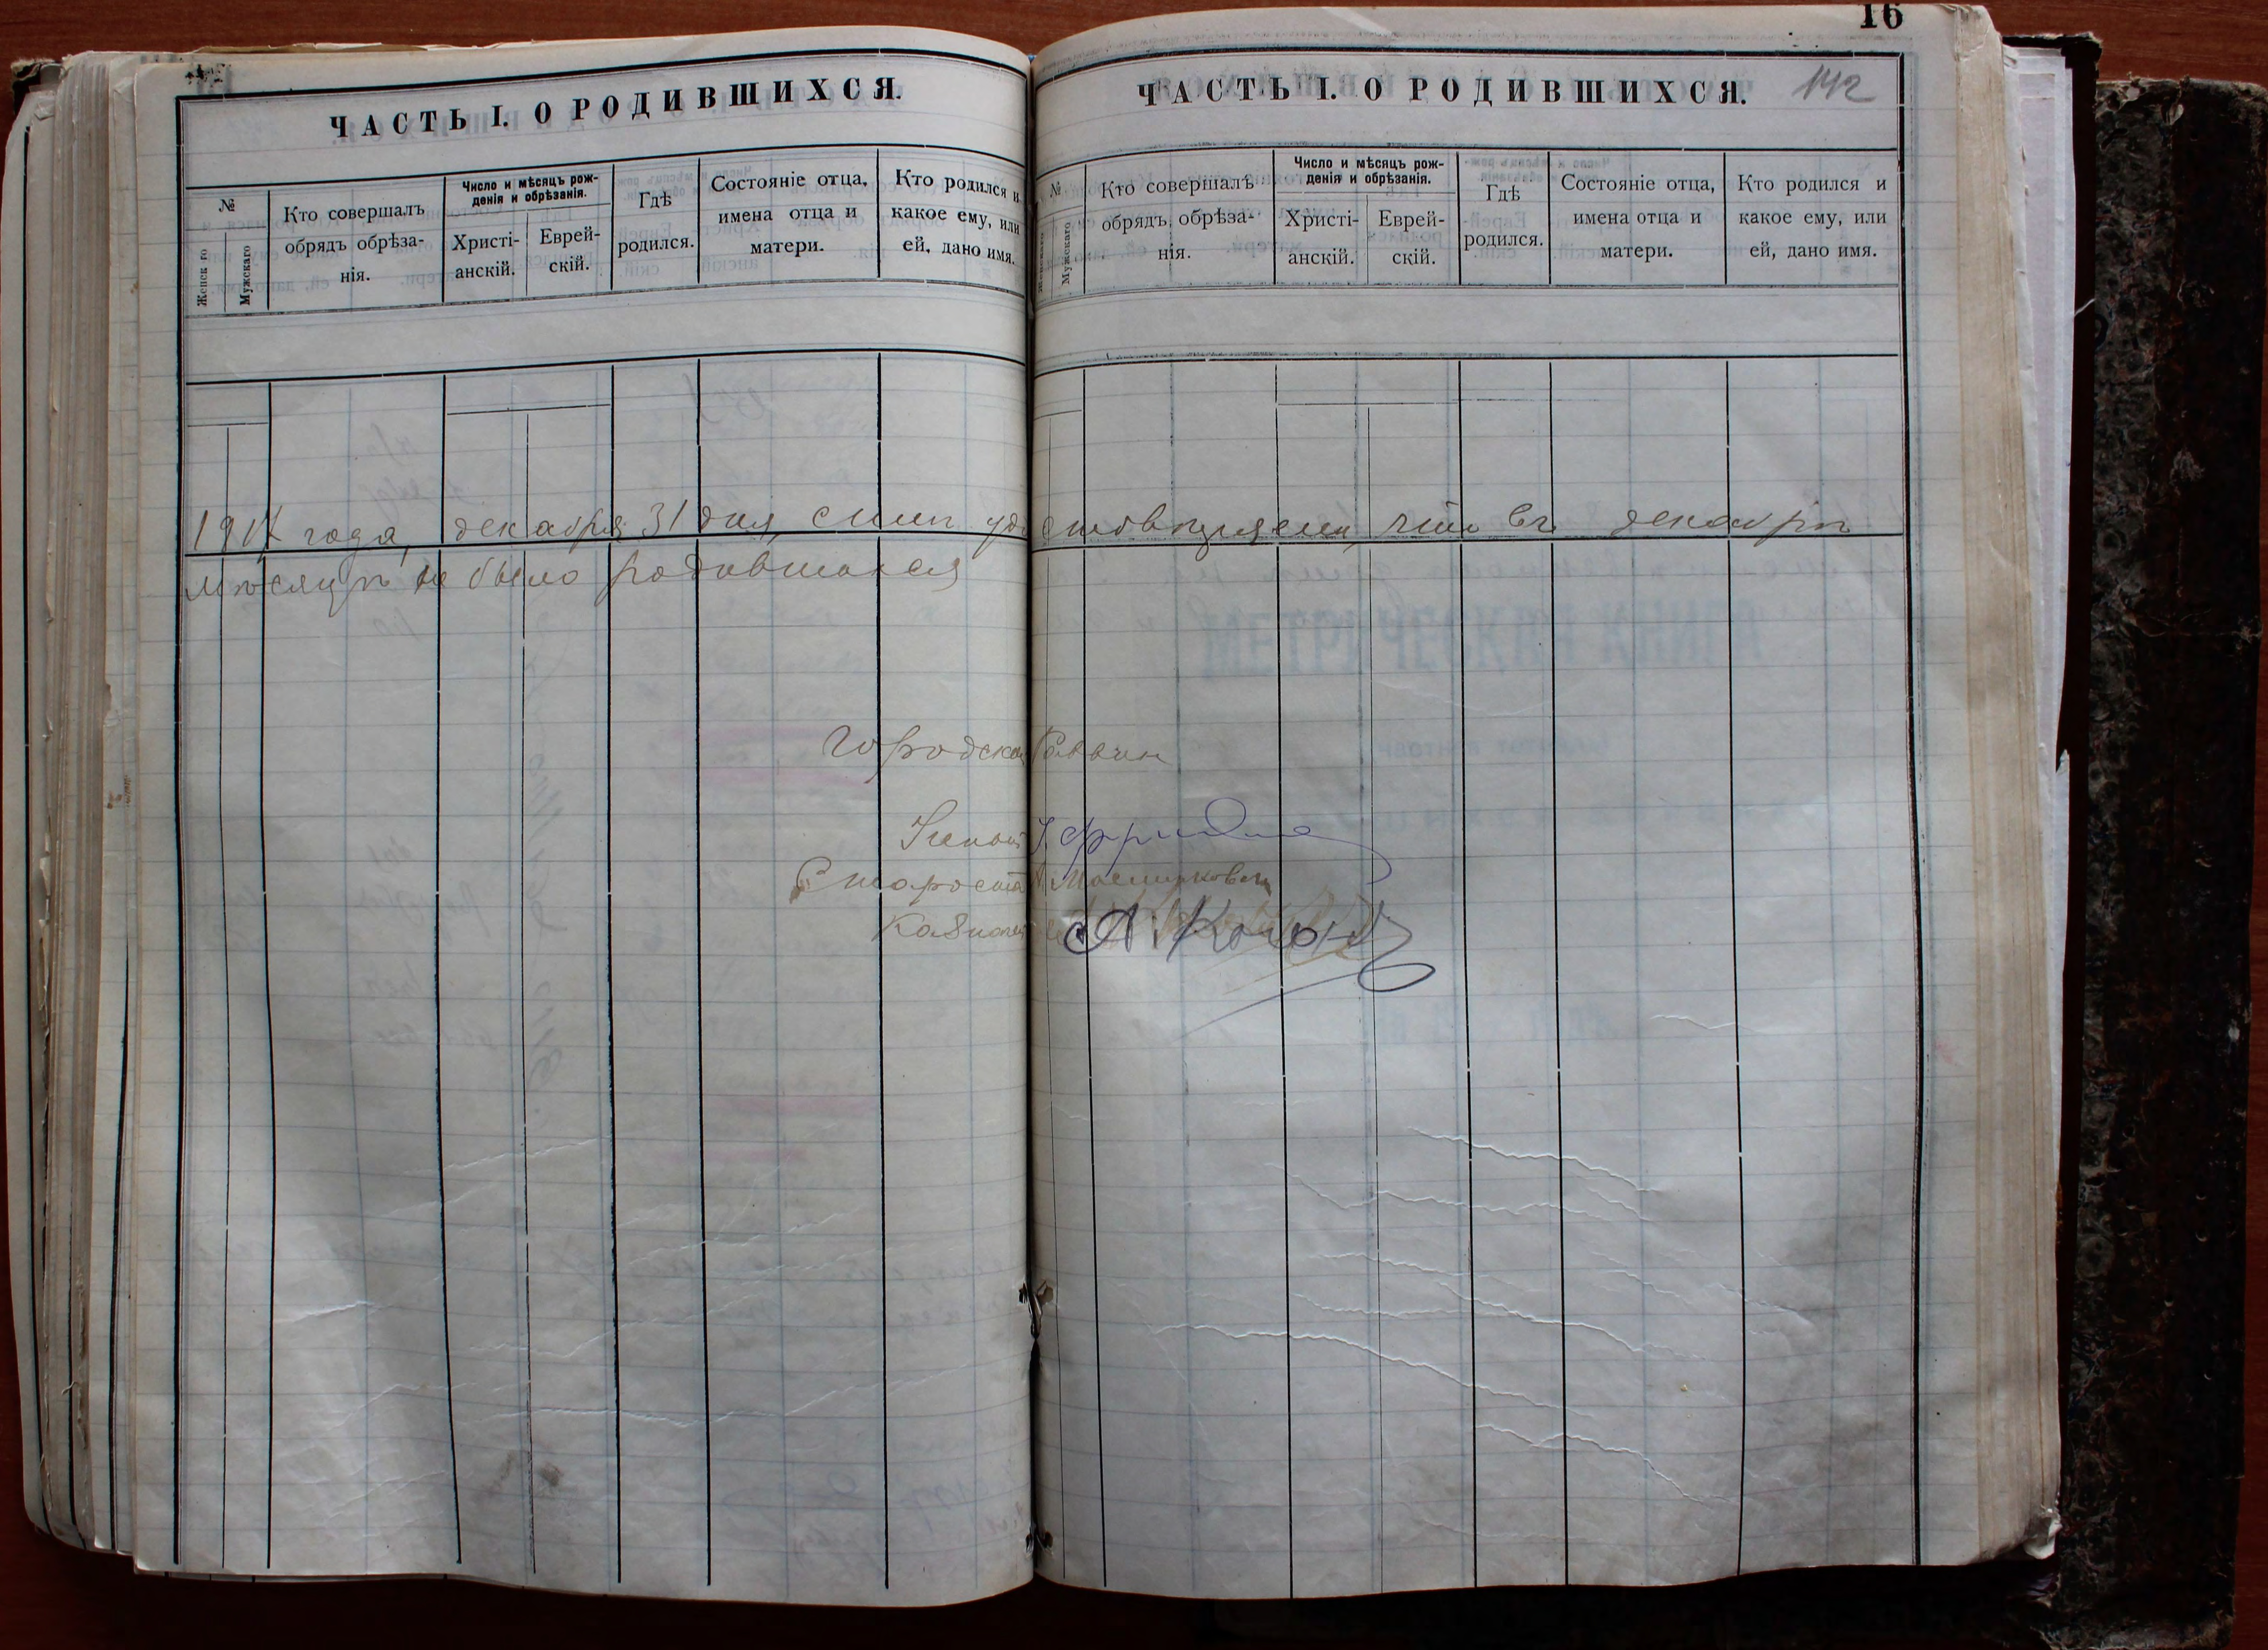 16
142
ЧАСТЬ I. О РОДИВШИХСЯ.
№
Женск го
Мужскаго
Кто совершалъ
обрядъ обрѣза-
нія.
Число и мѣсяцъ рож-
денія и обрѣзанія.
Христі-
анскій.
Еврей-
скій.
Гдѣ
родился.
Состояніе отца,
имена отца и
матери.
Кто родился и
какое ему, или
ей, дано имя.
ЧАСТЬ I. О РОДИВШИХСЯ.
№
Женскаго
Мужскаго
Кто совершалъ
обрядъ обрѣза-
нія.
Число и мѣсяцъ рож-
денія и обрѣзанія.
Христі-
анскій.
Еврей-
скій.
Гдѣ
родился.
Состояніе отца,
имена отца и
матери.
Кто родился и
какое ему, или
ей, дано имя.
1917 года, декабря 31 дня, симъ удостовѣряемъ, что въ декабрѣ
мѣсяцѣ не было родившихся
Городской Раввин
Ученый
Староста
Казначей А. Коган